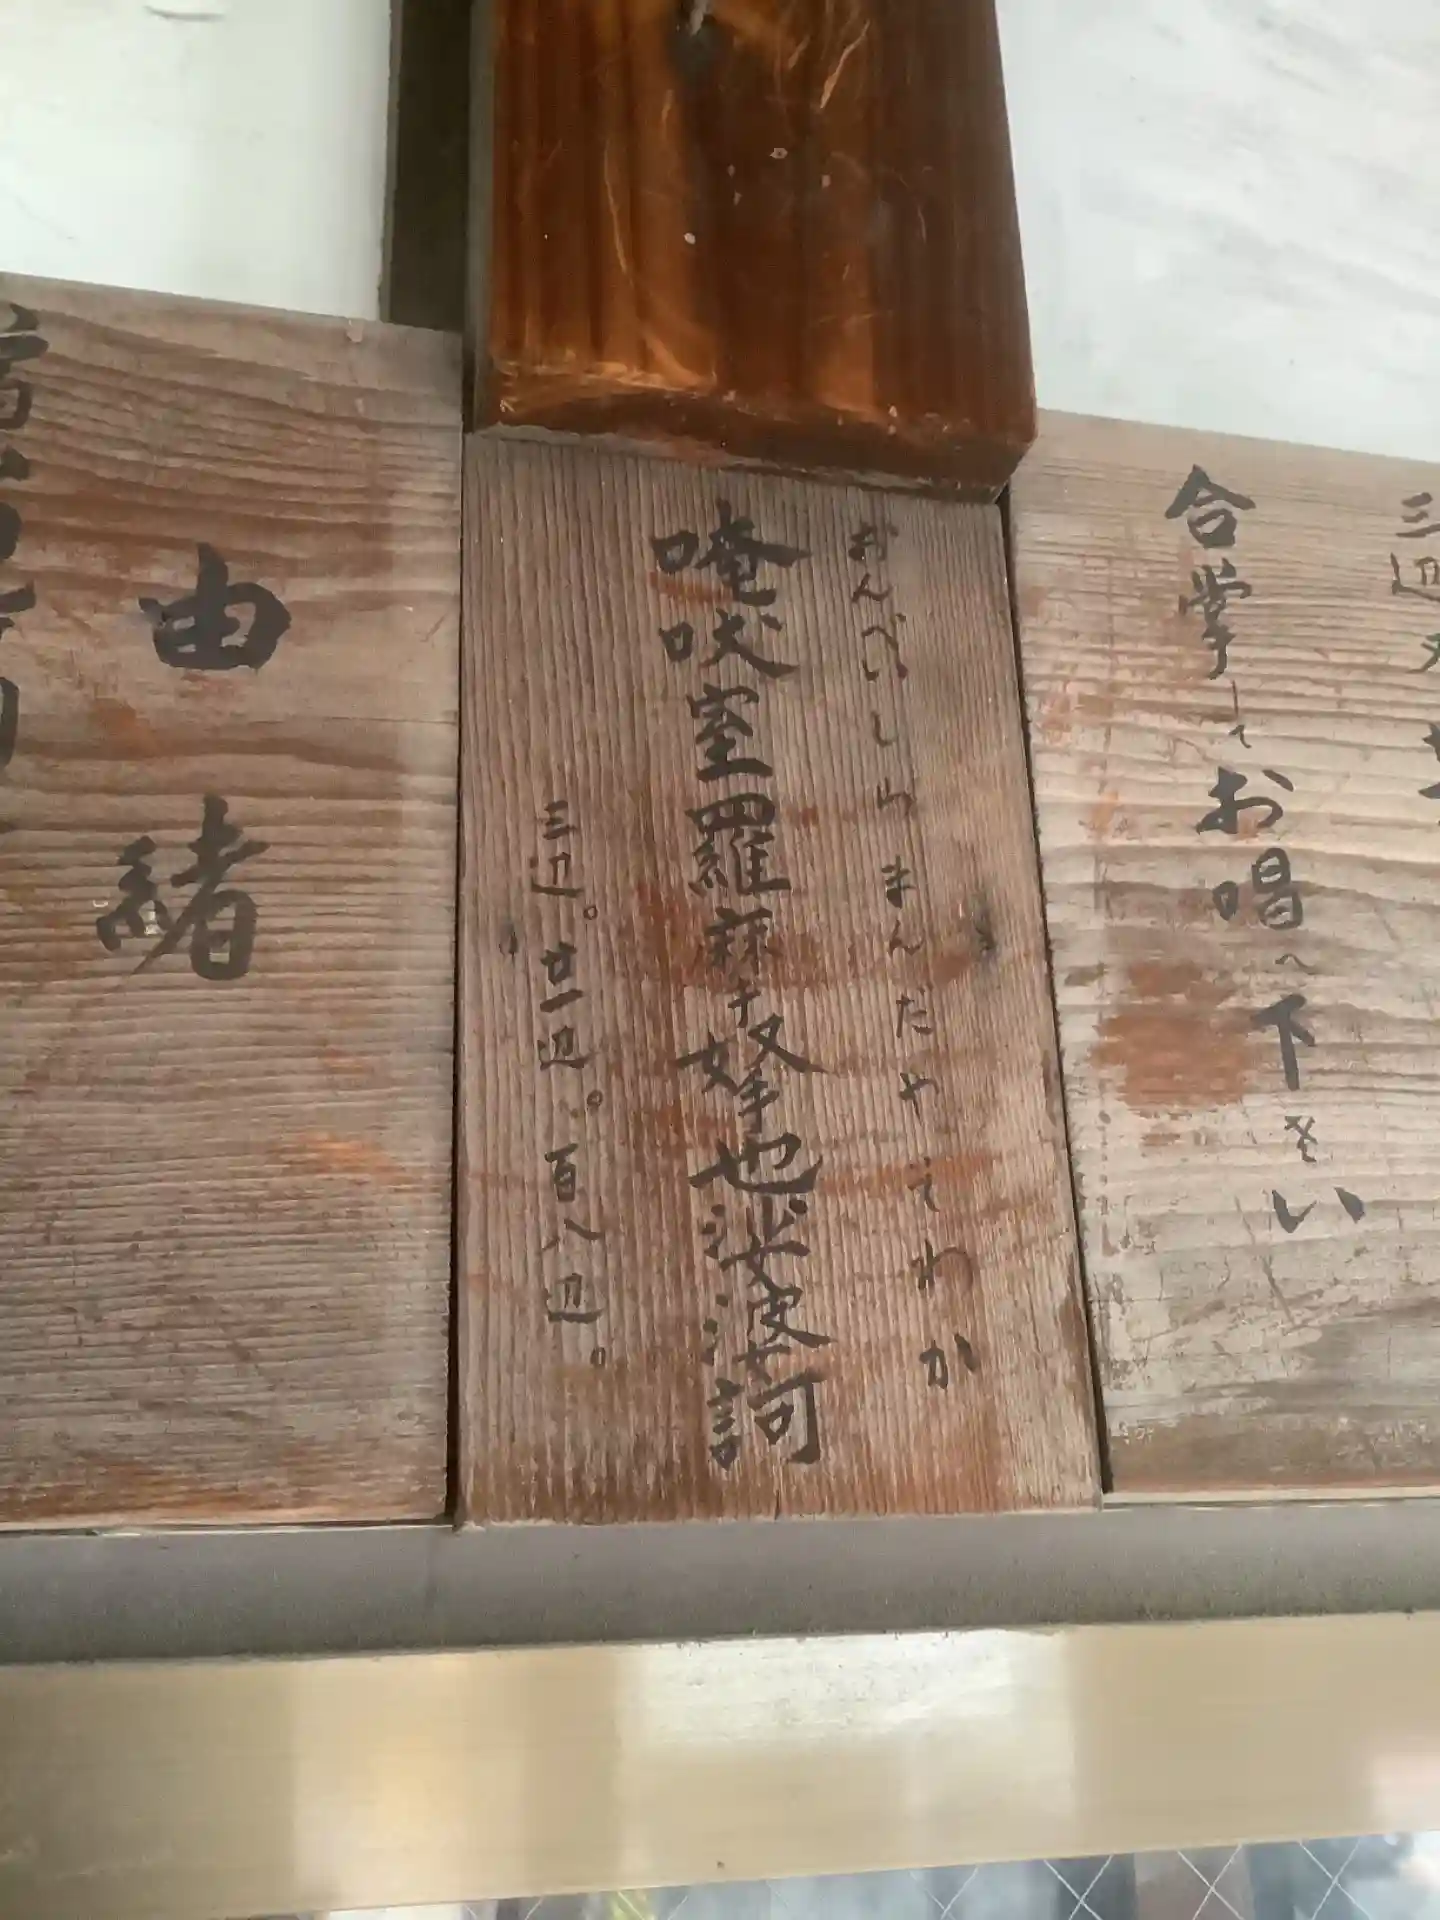 三辺又
合掌してお唱へ下さい
おんべいしらまんだやそわか
唵吠室羅麻拏也裟婆訶
三辺。廿一辺。百八辺。
由緒